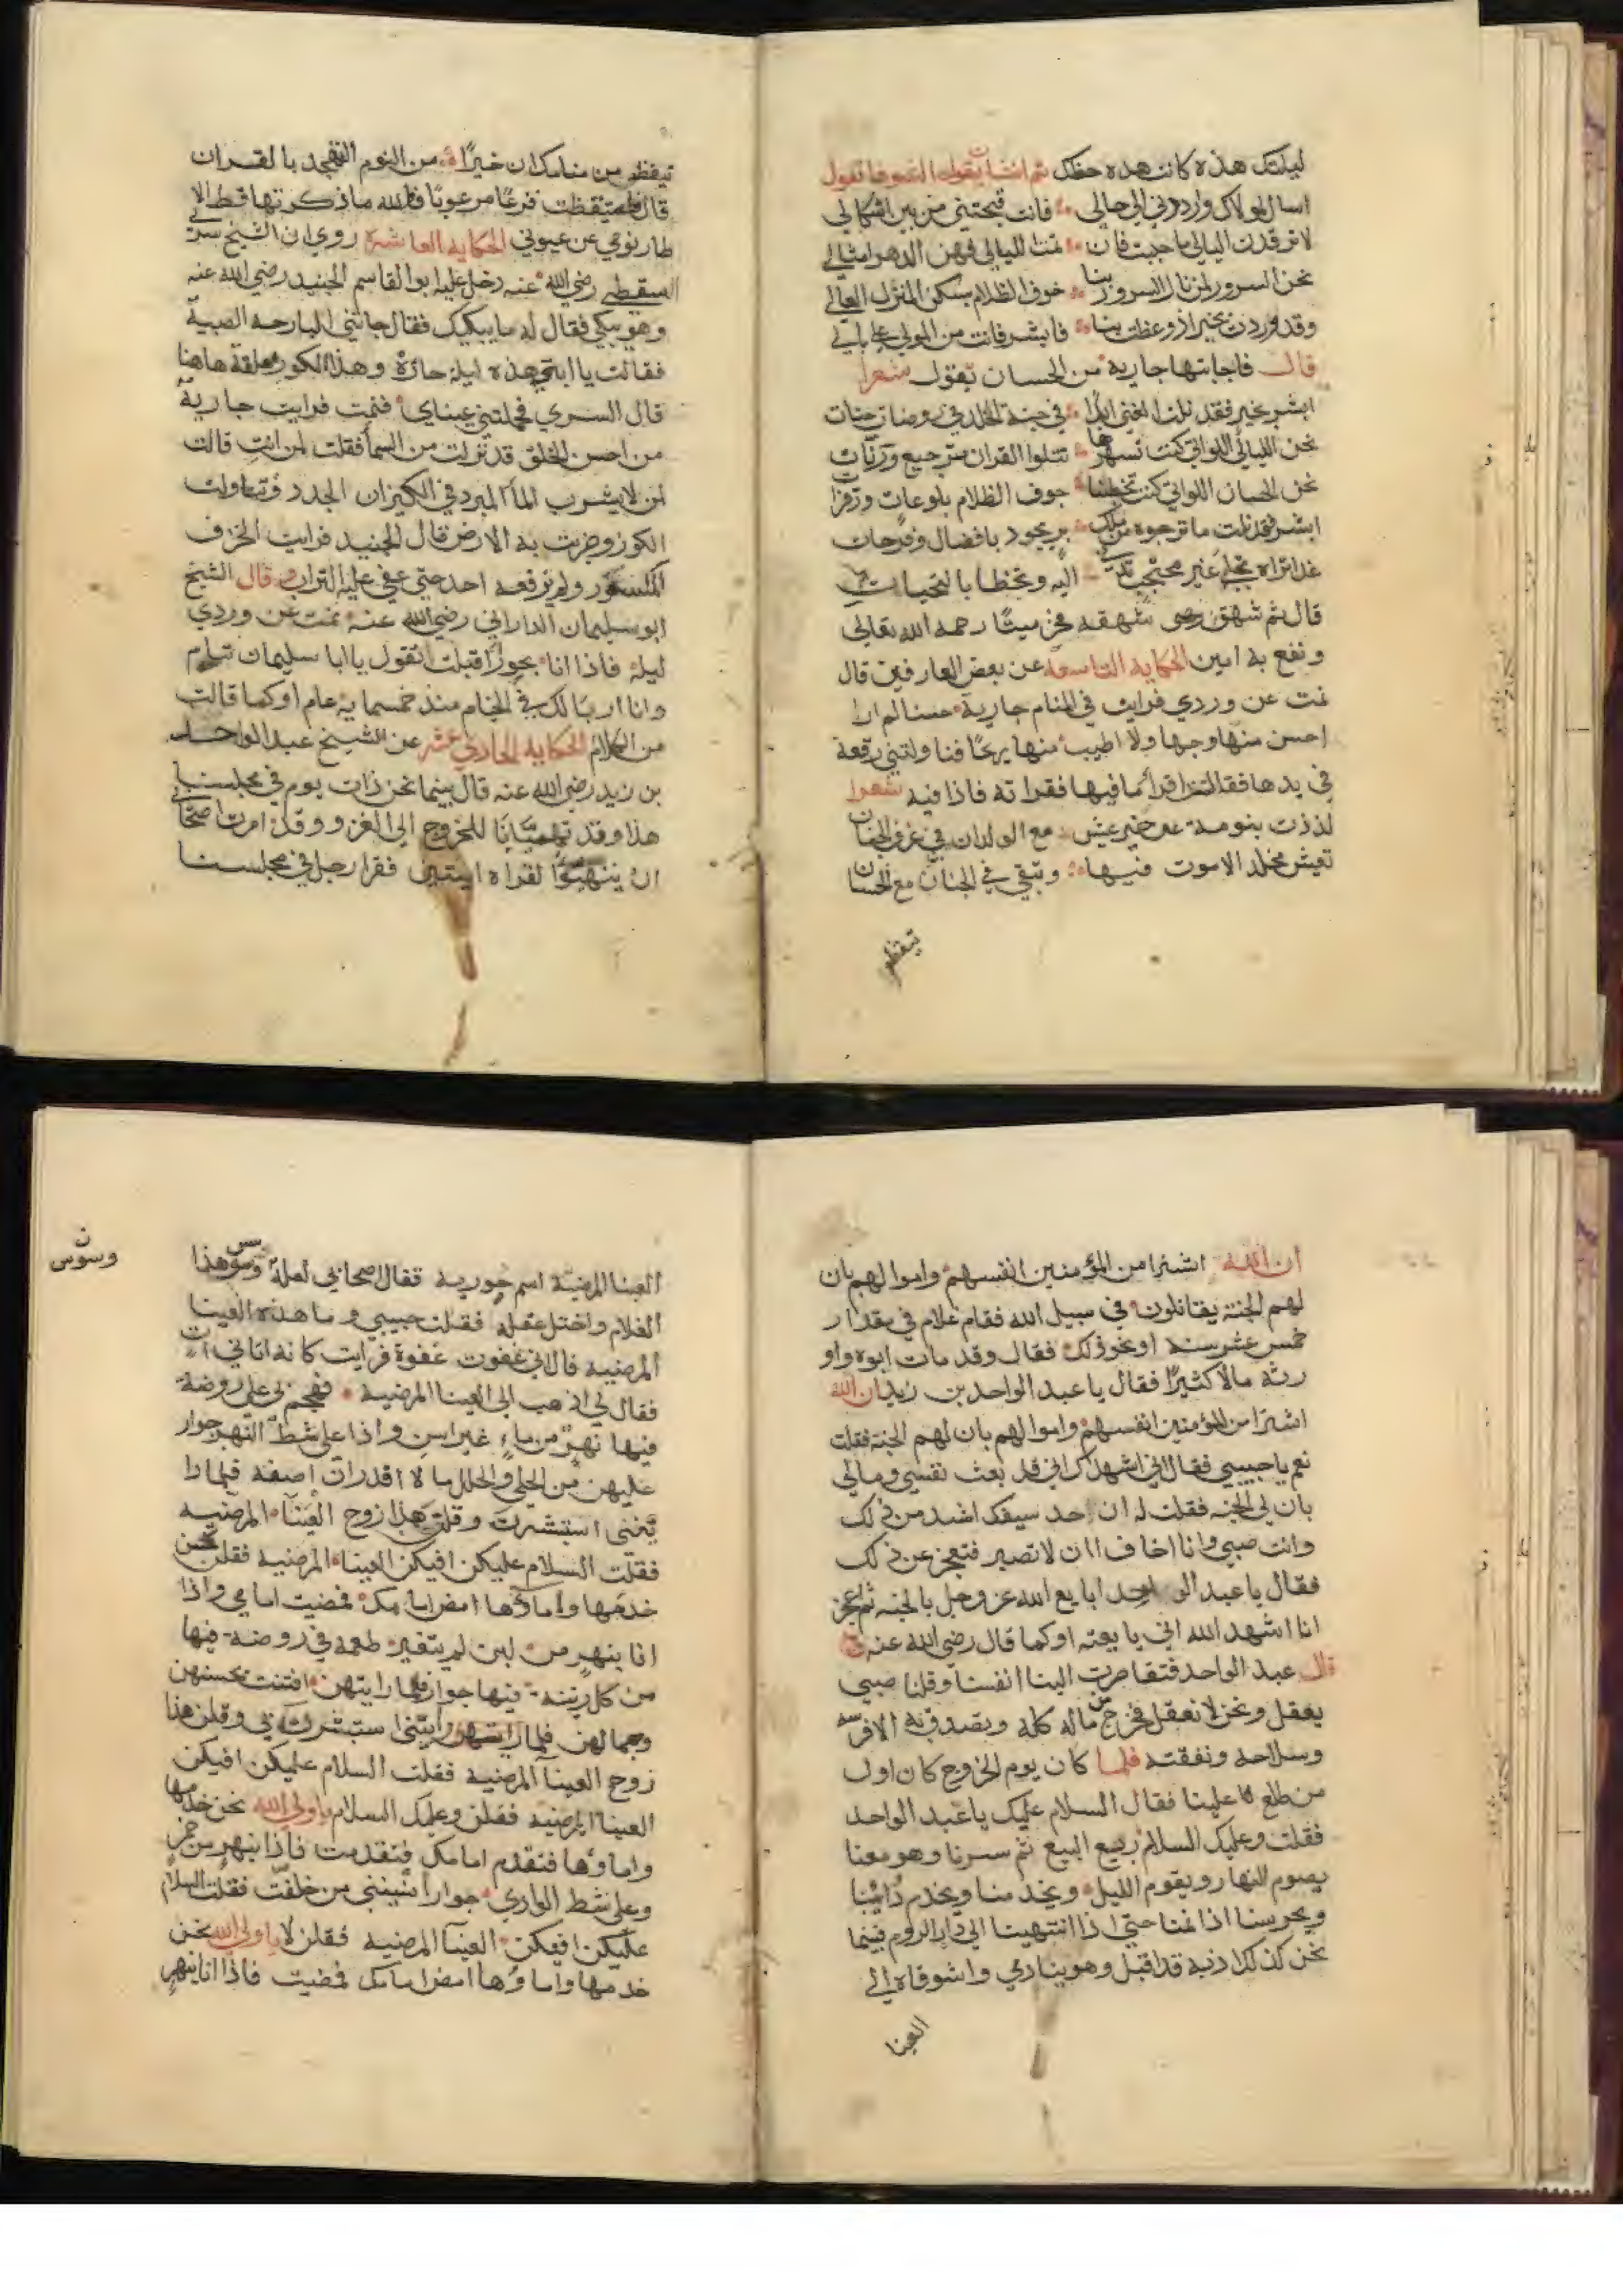 ليلتك هذه كانت هذه حظك ثم انشات تقول الشوهاء تقول
اسال لمولاك وارددني الى حالي فانت قبحتني من بين اشكالي
لا ترقدن الليالي ما حييت فان نمت الليالي فهن الدهر امثالي
نحن السرور لمن نال السرور بنا خوف الظلام بسكن المنزل العالي
وقد وردت بخير اذ وعظت بنا فابشر فانت من المولى على بالي
قال فاجابتها جارية من الحسان تقول شعرا
ابشر بخير فقد نلت الغنى ابدا في جنة الخلد في روضات جنات
نحن الليالي اللواتي كنت تسهرها تتلوا القران بترجيع ورنات
نحن الحسان اللواتي كنت تخطبنا جوف الظلام بلوعات وزفرا
ابشر فقد نلت ما ترجوه من ملك بر يجود بافضال وفرحات
غدا تراه تجلى غير محتجب تدنى اليه وتحظا بالتحيات
قال ثم شهق شهقه فخر ميتا رحمه الله تعالى
ونفع به امين الحكاية التاسعة عن بعض العارفين قال
نمت عن وردي فرايت في المنام جارية حسنا لم ارا
احسن منها وجها ولا اطيب منها ريحا فناولتني رقعة
في يدها فقالت اقرا ما فيها فقراته فاذا فيه شعرا
لذذت بنومة عن خير عيش مع الولدان في غرف الجنان
تعيش مخلد الا موت فيها وتبقى في الجنان مع الحسان
تيقظ
تيقظ من منامك ان خيرا من النوم التهجد بالقران
قال فاستيقظت فزعا مرعوبا فوالله ما ذكرتها قط الا
طار نومي عن عيوني الحكاية العاشرة روي ان الشيخ سري
السقطي رضي الله عنه دخل عليه ابو القاسم الجنيد رضي الله عنه
وهو يبكي فقال له ما يبكيك فقال جاتني البارحه الصبية
فقالت يا ابتي هذه ليلة حارة وهذا الكوز معلقة هاهنا
قال السري فحملتني عيناي فنمت فرايت جارية
من احسن الخلق قد نزلت من السما فقلت لمن انت قالت
لمن لا يشرب الما المبرد في الكيزان الجدد فتناولت
الكوز وضربت به الارض قال الجنيد فرايت الخزف
المكسور ولم يرفعه احد حتى عفى عليه التراب وقال الشيخ
ابو سليمان الداراني رضي الله عنه نمت عن وردي
ليلة فاذا انا بحورا اقبلت تقول يا ابا سليمان تنام
وانا اربا لك في الخيام منذ خمسماية عام او كما قالت
من الكلام الحكاية الحادي عشر عن الشيخ عبد الواحد
بن زيد رضي الله عنه قال بينما نحن ذات يوم في مجلسنا
هذا وقد تهيانا للخروج الى الغزو وقد امرت اصحابي
ان يتهيئوا لقراة ايتين فقرا رجل في مجلسنا
ان الله اشترا من المؤمنين انفسهم واموالهم بان
لهم الجنة يقاتلون في سبيل الله فقام غلام في مقدار
خمس عشر سنة او نحو ذلك فقال وقد مات ابوه واو
رثه مالا كثيرا فقال يا عبد الواحد بن زيد ان الله
اشترا من المؤمنين انفسهم واموالهم بان لهم الجنة فقلت
نعم يا حبيبي فقال اني اشهدك اني قد بعت نفسي ومالي
بان لي الجنه فقلت له ان حد سيفك اشد من ذلك
وانت صبي وانا اخاف ان لا تصبر فتعجز عن ذلك
فقال يا عبد الواحد ابايع الله عز وجل بالجنه ثم اعجز
انا اشهد الله اني بايعته او كما قال رضي الله عنه
قال عبد الواحد فتقاصرت الينا انفسنا وقلنا صبي
يعقل ونحن لا نعقل فخرج من ماله كله وبصدق به الا فرسه
وسلاحه ونفقته فلما كان يوم الخروج كان اول
من طلع علينا فقال السلام عليك يا عبد الواحد
فقلت وعليك السلام ربيع البيع ثم سرنا وهو معنا
يصوم النهار ويقوم الليل ويخدمنا ويخدم دابنا
ويحرسنا اذا نمنا حتى اذا انتهينا الى دار الروم فبينما
نحن كذلك اذ به قد اقبل وهو ينادي واشوقاه الى
العينا
العينا المرضية اسم حورية فقال اصحابي لعله وسوس هذا
ن
وسوس
الغلام واختل عقله فقلت حبيبي وما هذه العينا
المرضيه قال اني غفوت غفوة فرايت كانه اتاني ات
فقال لي اذهب الى العينا المرضية فهجم بي على روضة
فيها نهر من ماء غير اسن واذا على شط النهر جوار
عليهن من الحلي والحلل ما لا اقدر ان اصفه فلما را
يننى استبشرت وقلن هذا زوج العينا المرضيه
فقلت السلام عليكن افيكن العيناء المرضيه فقلن نحن
خدمها واماؤها امض امامك فمضيت امامي واذا
انا بنهر من لبن لم يتغير طعمه في روضة فيها
من كل زينه فيها جوار فلما رايتهن افتتنت بحسنهن
وجمالهن فلما رايتهن وايننى استبشرت بي وقلن هذا
زوج العينا المرضيه فقلت السلام عليكن افيكن
العينا المرضيه فقلن وعليك السلام يا ولي الله نحن خدمها
واماؤها فتقدم امامك فتقدمت فاذا بنهر من خمر
وعلى شط الوادي جوارا نسينني من خلفت فقلت السلام
عليكن افيكن العينا المرضيه فقلن لا يا ولي الله نحن
خدمها واماؤها امض امامك فمضيت فاذا انا بنهر